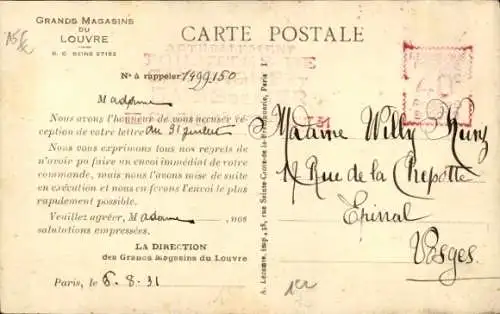 GRANDS MAGASINS
DU
LOUVRE
R. C. SEINE 27162
CARTE POSTALE
ACTUELLEMENT
N° à rappeler 1499150
Madame
Nous avons l'honneur de vous accuser ré-
ception de votre lettre du 31 juillet
Nous vous exprimons tous nos regrets de
n'avoir pu faire un envoi immédiat de votre
commande, mais nous l'avons mise de suite
en exécution et nous en ferons l'envoi le plus
rapidement possible.
Veuillez agréer, Madame, nos
salutations empressées.
LA DIRECTION
des Grands Magasins du Louvre
Paris, le 6.8.31
Madame Willy Kunz
12 Rue de la Chipotte
Epinal
Vosges